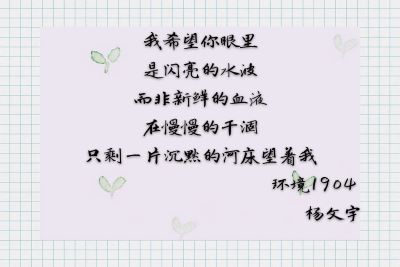 我希望你眼里
是闪亮的水波
而非新鲜的血液
在慢慢的干涸
只剩一片沉默的河床望着我
环境1904
杨文宇